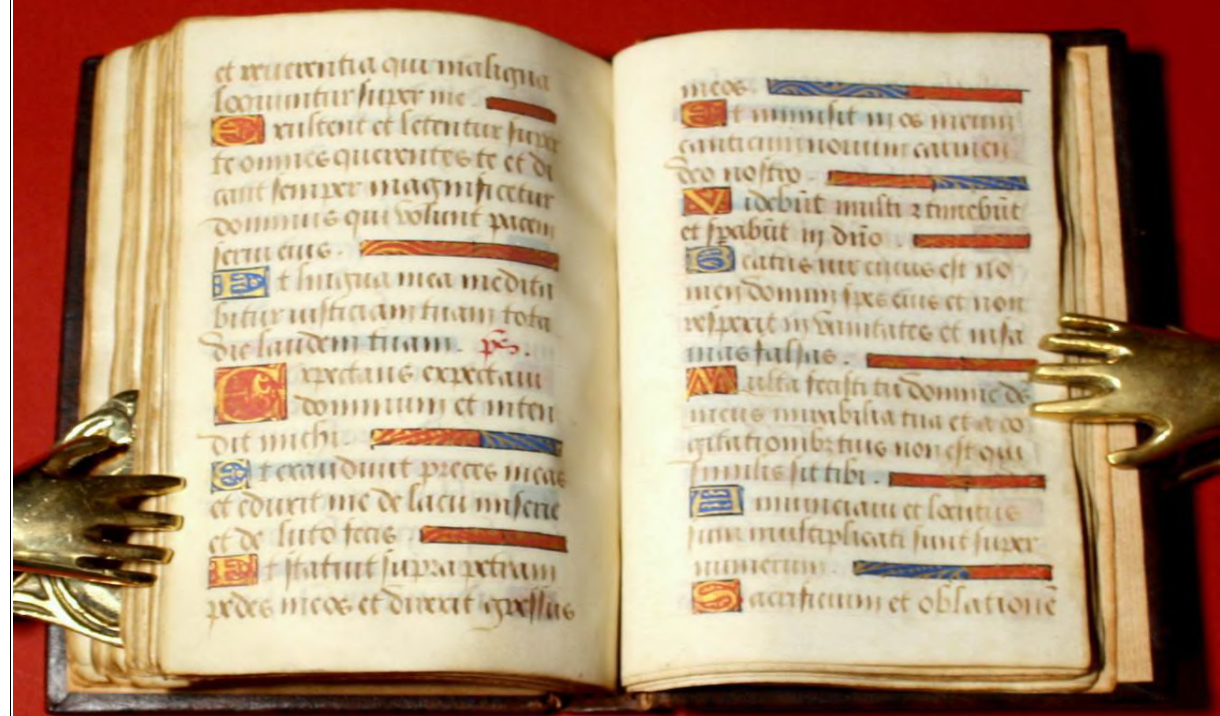 et reuerentia qui maligna
loquuntur super me.
Exultent et letentur super
te omnes querentes te et di
cant semper magnificetur
dominus qui volunt pacem
serui eius.
Et lingua mea medita
bitur iusticiam tuam tota
die laudem tuam. ps.
Expectans expectaui
dominum et inten
dit michi.
Et exaudiuit preces meas
et eduxit me de lacu miserie
et de luto fecis.
Et statuit supra petram
pedes meos et direxit gressus
meos.
Et inmisit in os meum
canticum nouum carmen
deo nostro.
Videbūt multi ⁊ timebūt
et sꝑabūt in dño.
Beatus uir cuius est no
men domini spes eius et non
respexit in vanitates et insa
nias falsas.
Multa fecisti tu domine ds
meus mirabilia tua et a co
gitationibꝫ tuis non est qui
similis sit tibi.
Annunciaui et locutus
sum multiplicati sunt super
numerum.
Sacrificium et oblationē